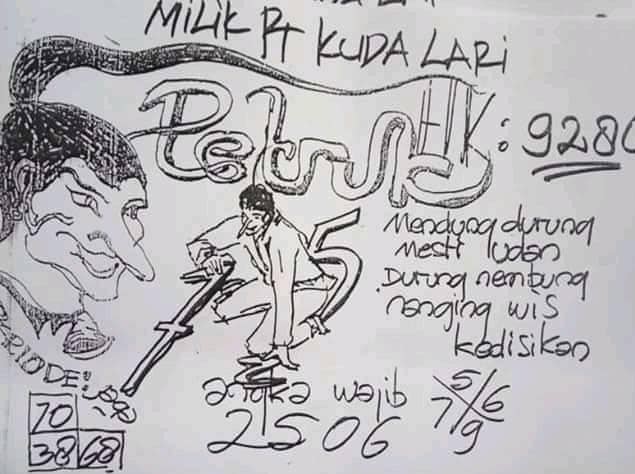 MILIK PT KUDA LARI
Petruk
HK: 9280
5
Mendung durung
mesti udan
Durung nembung
nanging wis
kedisikan
PERIODE:
angka wajib
2506
5/6
7/9
70
38 68